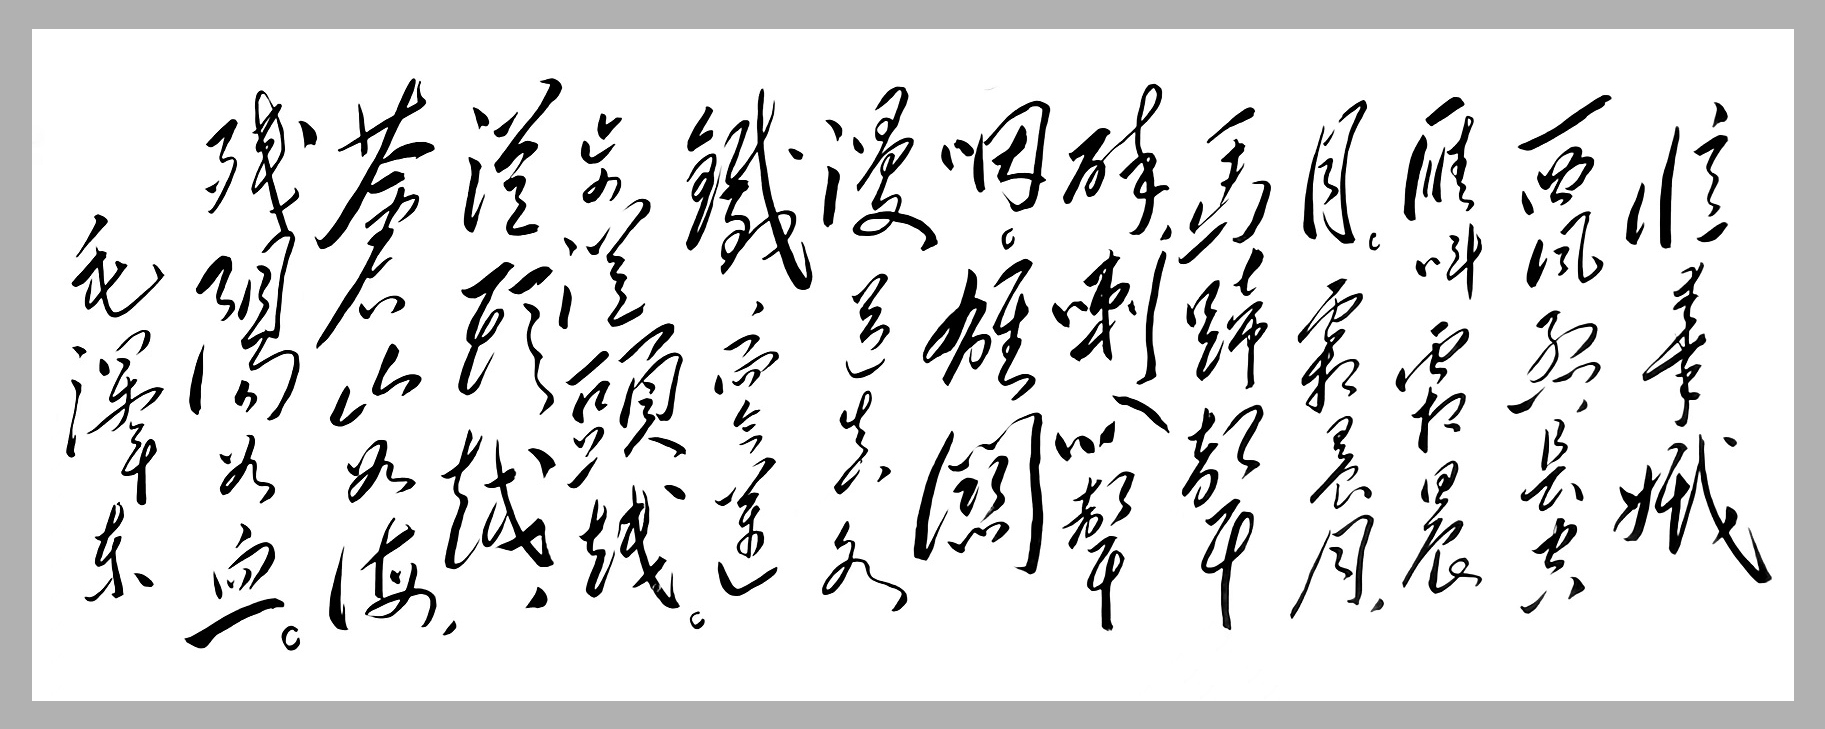 憶秦娥
西風烈,長空
雁叫霜晨
月。霜晨月,
馬蹄聲
碎,喇叭聲
咽。雄關
漫道真如
鐵,而今邁
步從頭越。
從頭越,
蒼山如海,
残陽如血。
毛澤东